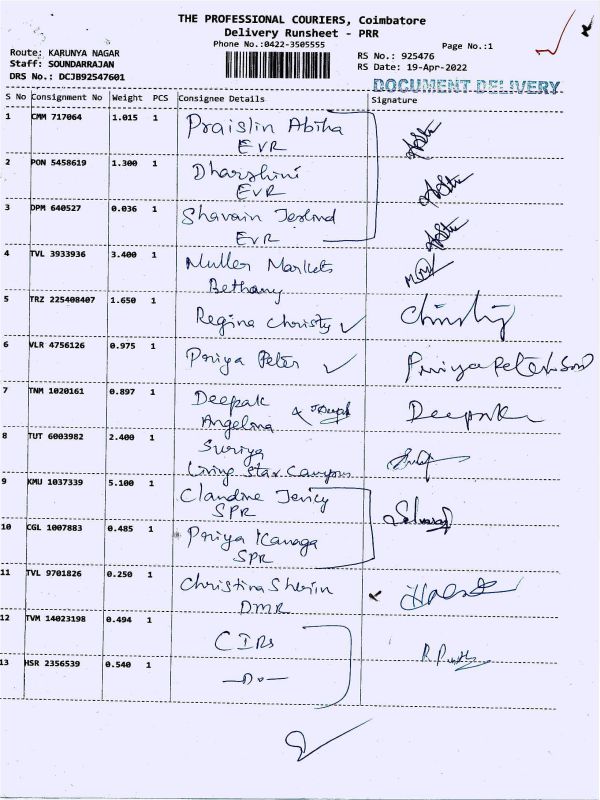 THE PROFESSIONAL COURIERS, Coimbatore
Delivery Runsheet - PRR
Phone No.:0422-3505555
Page No.:1
Route: KARUNYA NAGAR
Staff: SOUNDARRAJAN
DRS No.: DCJB92547601
RS No.: 925476
RS Date: 19-Apr-2022
DOCUMENT DELIVERY
S No Consignment No Weight PCS Consignee Details Signature
1 CMM 717064 1.015 1 Praislin Abiha
EVR
2 PON 5458619 1.300 1 Dharshini
EVR
3 DPM 640527 0.036 1 Shavain
EVR
4 TVL 3933936 3.400 1 Muller Markets
Bethany
5 TRZ 225408407 1.650 1 Regina Christy
6 VLR 4756126 0.975 1 Priya Peter
7 TNM 1020161 0.897 1 Deepak Deepak
Angelina
8 TUT 6003982 2.400 1 Suriya
Living Star
9 KMU 1037339 5.100 1 Claudine Jenicy
SPR
10 CGL 1007883 0.485 1 Priya Kanaga
SPR
11 TVL 9701826 0.250 1 Christina Sherin
DMR
12 TVM 14023198 0.494 1 CIRs
13 HSR 2356539 0.540 1 —Do—